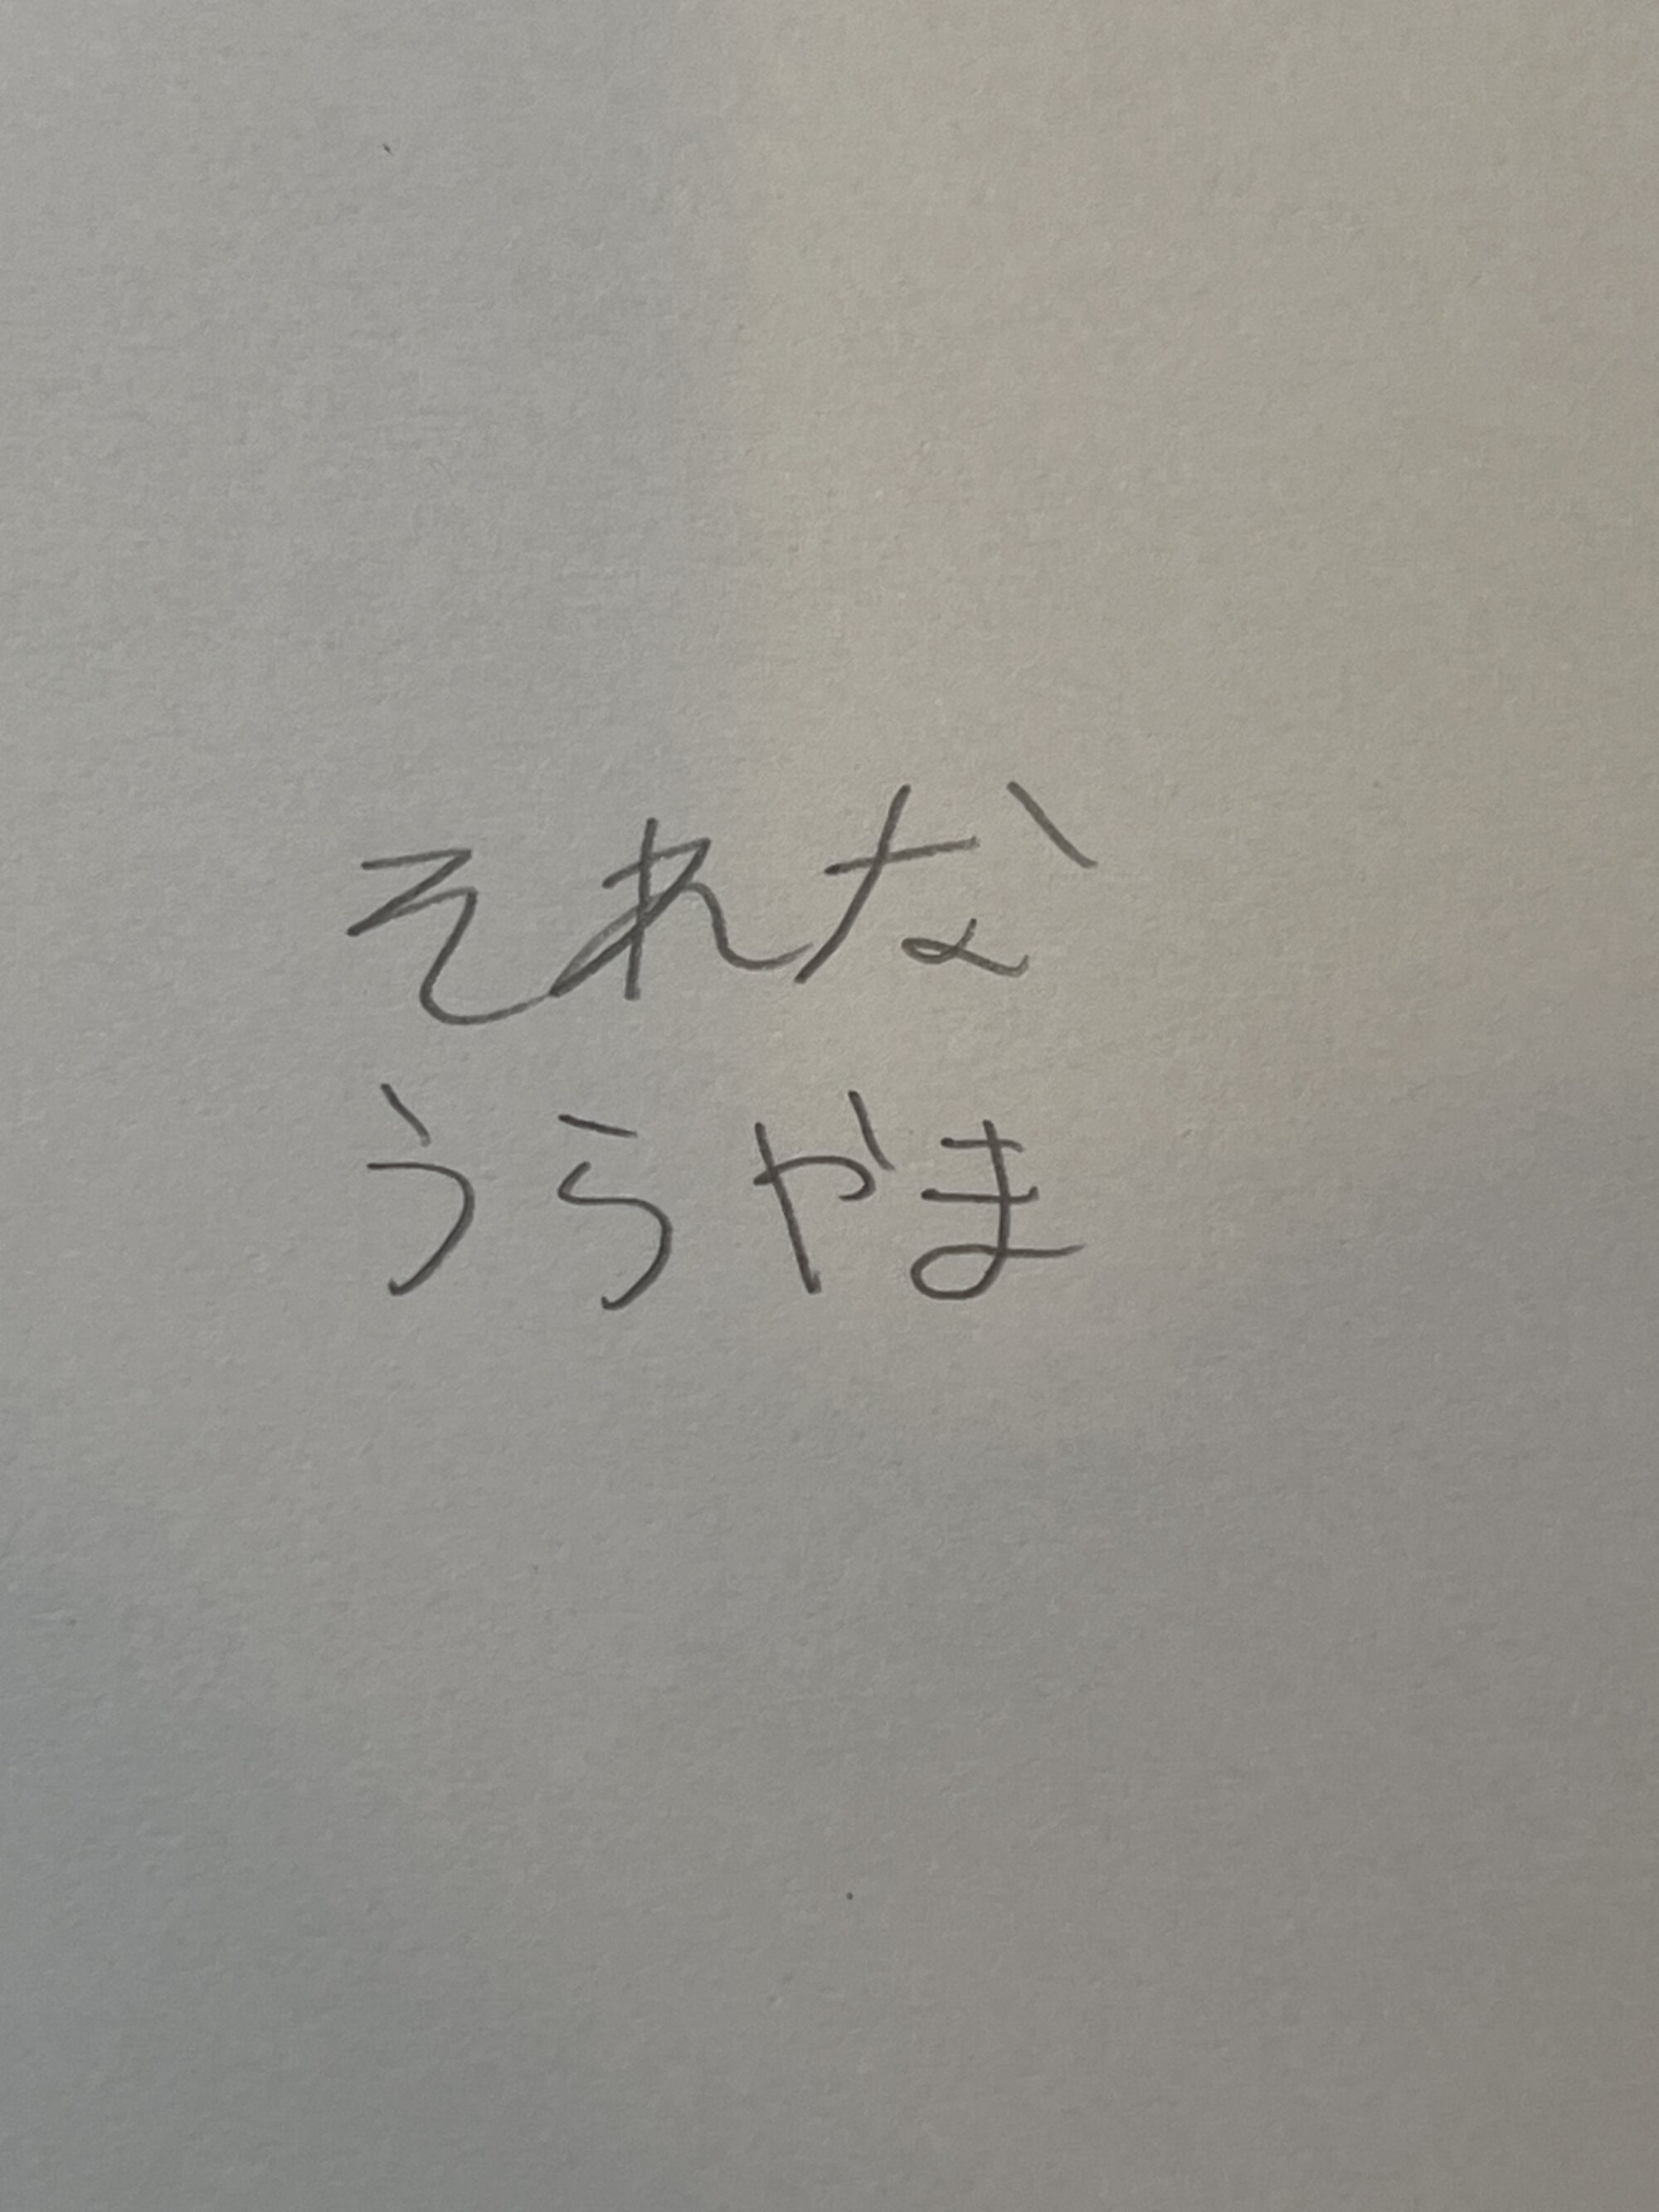 それな
うらやま